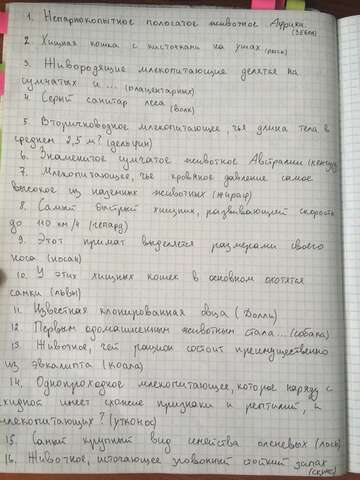 1. Непарнокопытное полосатое животное Африки.
(зебра)
2. Хищная кошка с кисточками на ушах (рысь)
3. Живородящие млекопитающие делятся на
сумчатых и ... (плацентарных)
4. Серый санитар леса (волк)
5. Вторичноводное млекопитающее, чья длина тела в
среднем 2,5 м? (дельфин)
6. Знаменитое сумчатое животное Австралии (кенгуру)
7. Млекопитающее, чье кровяное давление самое
высокое из наземных животных (жираф)
8. Самый быстрый хищник, развивающий скорость
до 110 км/ч (гепард)
9. Этот примат выделяется размерами своего
носа (носач)
10. У этих хищных кошек в основном охотятся
самки (львы)
11. Известная клонированная овца (Долли)
12 Первым одомашненным животным стала... (собака)
13. Животное, чей рацион состоит преимущественно
из эвкалипта (коала)
14. Однопроходное млекопитающее, которое наряду с
ехидной имеет схожие признаки и рептилий, и
млекопитающих? (утконос)
15. Самый крупный вид семейства оленевых (лось)
16. Животное, источающее зловонный стойкий запах
(скунс)